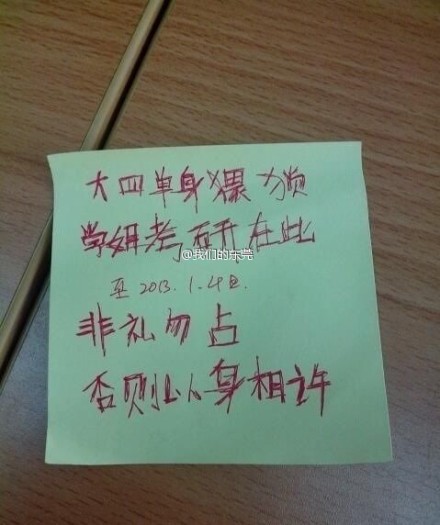 大四单身猥琐
学姐考研在此
@我们的东莞
至 2013.1.4日
非礼勿占
否则以身相许